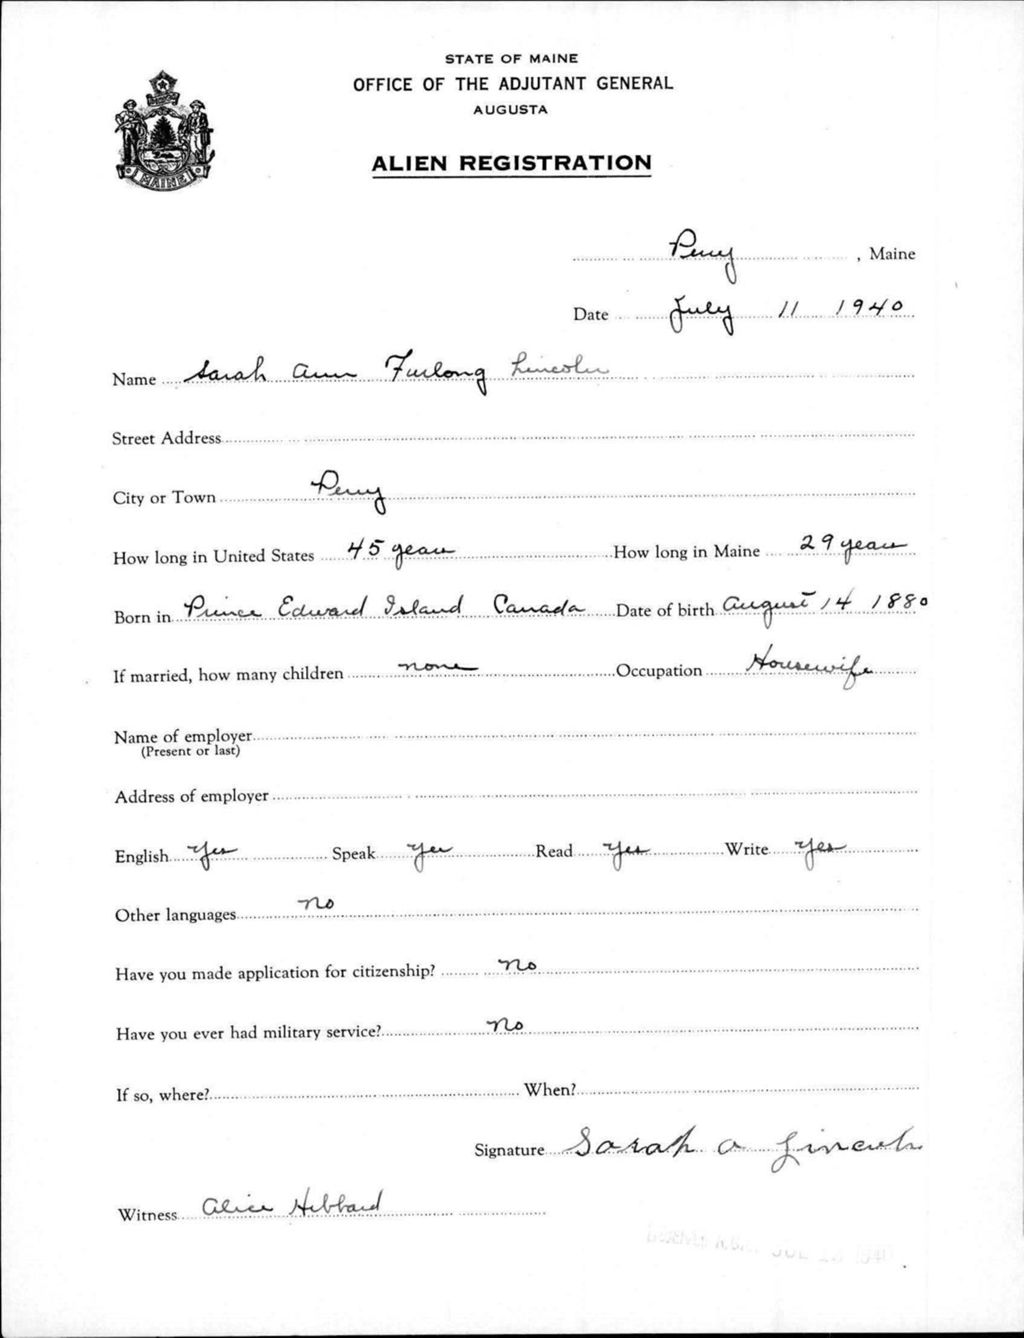 STATE OF MAINE
OFFICE OF THE ADJUTANT GENERAL
AUGUSTA
ALIEN REGISTRATION
MAINE
Perry, Maine
Date July 11 1940
Name Sarah Ann Furlong Lincoln
Street Address
City or Town Perry
How long in United States 45 years How long in Maine 29 years
Born in Prince Edward Island Canada Date of birth August 14 1880
If married, how many children none Occupation Housewife
Name of employer
(Present or last)
Address of employer
English Yes Speak Yes Read Yes Write Yes
Other languages no
Have you made application for citizenship? no
Have you ever had military service? no
If so, where? When?
Signature Sarah A Lincoln
Witness Alice Hibbard